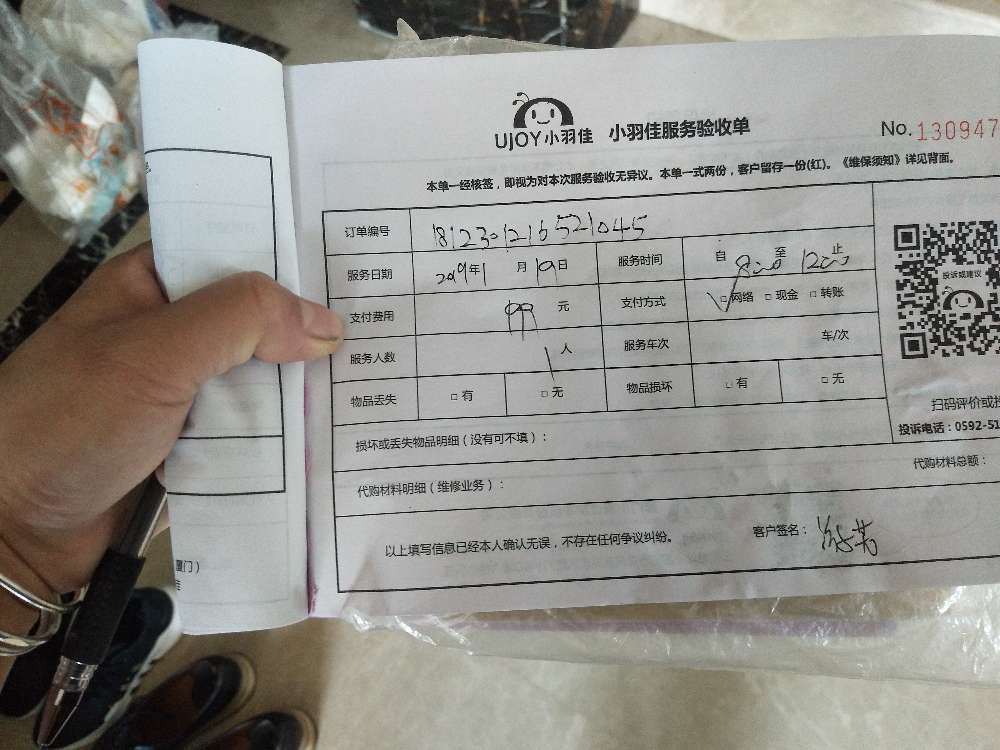 UJOY小羽佳 小羽佳服务验收单 No.130947
本单一经核签，即视为对本次服务验收无异议。本单一式两份，客户留存一份(红)。《维保须知》详见背面。
订单编号 1812301216521045
服务日期 2019年1月19日 服务时间 自8:00至12:00止
支付费用 99元 支付方式 ☑网络 □现金 □转账
服务人数 1人 服务车次 车/次
物品丢失 □有 □无 物品损坏 □有 □无
投诉或建议
扫码评价或投
投诉电话：0592-51
损坏或丢失物品明细（没有可不填）：
代购材料明细（维修业务）： 代购材料总额：
以上填写信息已经本人确认无误，不存在任何争议纠纷。 客户签名：
厦门）